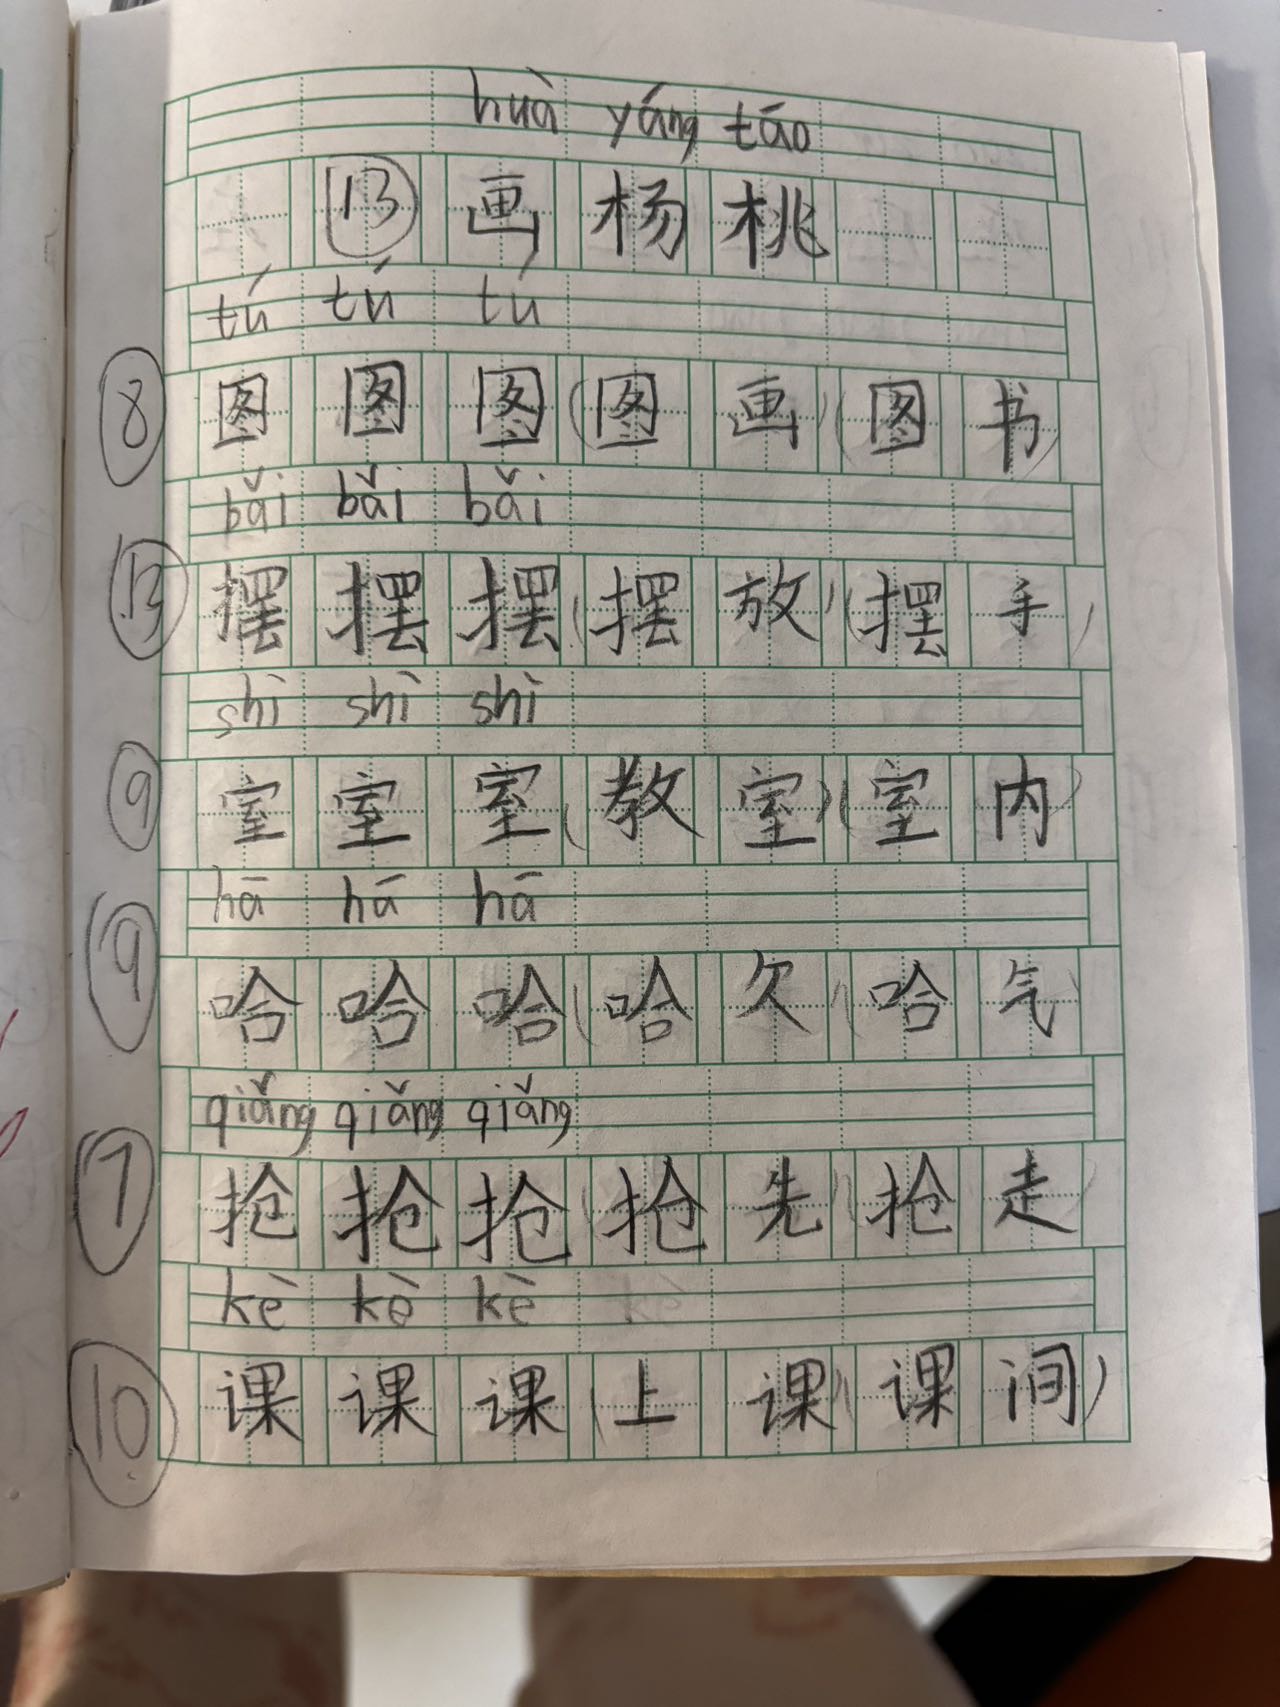 huà yáng tāo
⑬ 画 杨 桃
tú tú tú
⑧ 图 图 图 (图 画) (图 书)
bǎi bǎi bǎi
⑬ 摆 摆 摆 (摆 放) (摆 手)
shì shì shì
⑨ 室 室 室 (教 室) (室 内)
hā hā hā
⑨ 哈 哈 哈 (哈 欠 (哈 气)
qiǎng qiǎng qiǎng
⑦ 抢 抢 抢 (抢 先 (抢 走)
kè kè kè
⑩ 课 课 课 (上 课) (课 间)